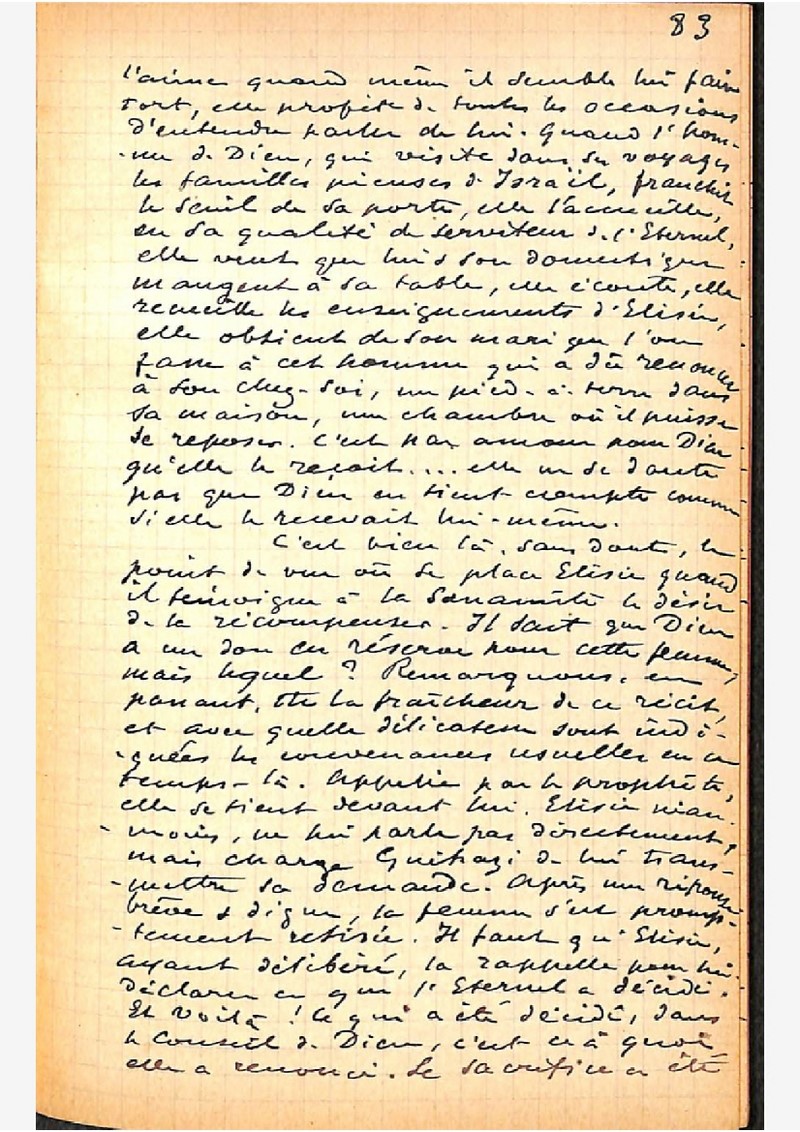 83
l'aime quand même il semble lui faire
tort, elle profite de toutes les occasions
d'entendre parler de lui. Quand l'hom-
-me de Dieu, qui visite dans ses voyages
les familles pieuses d'Israël, franchit
le seuil de sa porte, elle l'accueille,
en sa qualité de serviteur de l'Eternel,
elle veut que lui & son domestique
mangent à sa table, elle écoute, elle
recueille les enseignements d'Elisée,
elle obtient de son mari que l'on
fasse à cet homme qui a dû renoncer
à son chez-soi, un pied-à-terre dans
sa maison, une chambre où il puisse
se reposer. C'est par amour pour Dieu
qu'elle le reçoit.... elle ne se doute
pas que Dieu en tient compte comme
si elle le recevait lui-même.
C'est bien là, sans doute, le
point de vue où se place Elisée quand
il témoigne à la Sunamite le désir
de la récompenser. Il sait que Dieu
a un don en réserve pour cette femme,
mais lequel ? Remarquons, en
passant, la fraîcheur de ce récit,
et avec quelle délicatesse sont indi-
-quées les convenances usuelles en ce
temps-là. Appelée par le prophète,
elle se tient devant lui. Elisée néan-
-moins, ne lui parle pas directement,
mais charge Guéhazi de lui trans-
-mettre sa demande. Après une réponse
brève & digne, la femme s'est promp-
-tement retirée. Il faut qu'Elisée,
ayant délibéré, la rappelle pour lui
déclarer ce que l'Eternel a décidé.
Et voilà ! Ce qui a été décidé, dans
le Conseil de Dieu, c'est ce à quoi
elle a renoncé. Le sacrifice a été